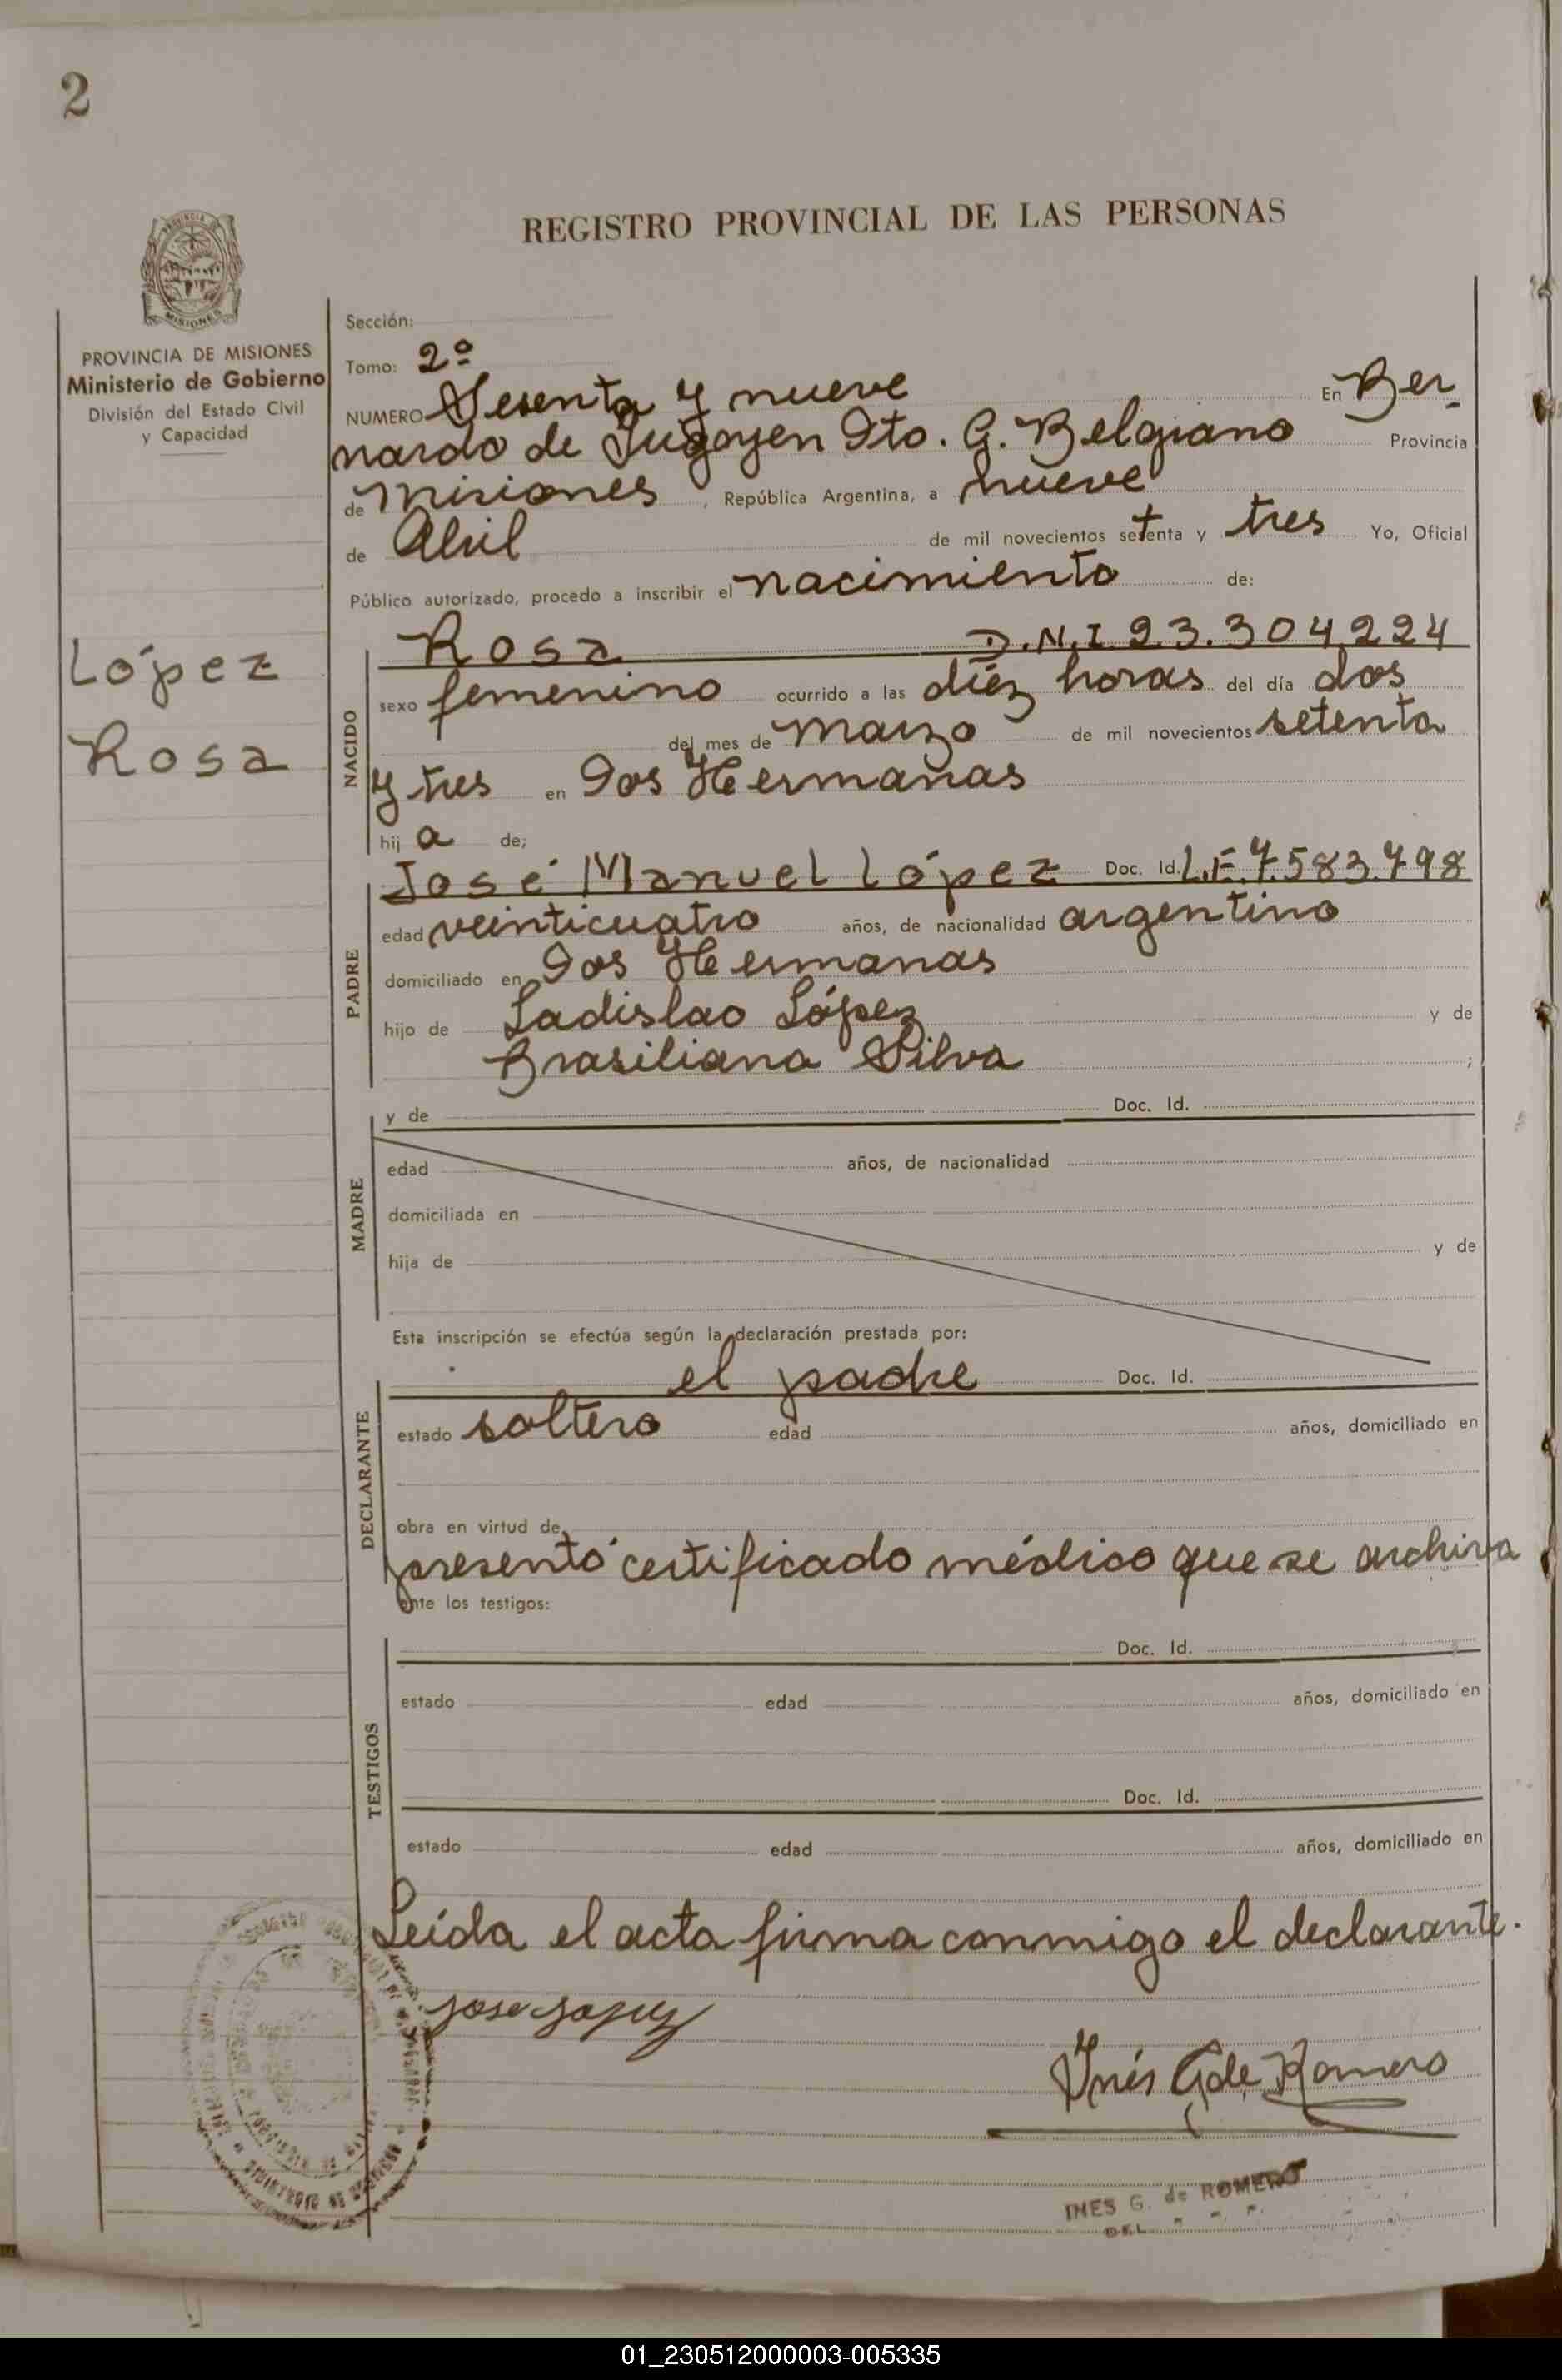 2
REGISTRO PROVINCIAL DE LAS PERSONAS
PROVINCIA
MISIONES
PROVINCIA DE MISIONES
Ministerio de Gobierno
División del Estado Civil
y Capacidad
López
Rosa
Sección:
Tomo: 2º
NUMERO Sesenta y nueve En Ber-
nardo de Irigoyen Dto. G. Belgrano Provincia
de Misiones, República Argentina, a nueve
de Abril de mil novecientos setenta y tres Yo, Oficial
Público autorizado, procedo a inscribir el nacimiento de:
NACIDO
Rosa D.N.I. 23.304224
sexo femenino ocurrido a las diéz horas del día dos
del mes de marzo de mil novecientos setenta
y tres en Dos Hermanas
hij a de;
PADRE
José Manuel López Doc. Id. L.E. 7.583.798
edad veinticuatro años, de nacionalidad argentino
domiciliado en Dos Hermanas
hijo de Ladislao López y de
Brasiliana Silva ;
MADRE
y de Doc. Id.
edad años, de nacionalidad
domiciliada en
hija de y de
Esta inscripción se efectúa según la declaración prestada por:
DECLARANTE
el padre Doc. Id.
estado soltero edad años, domiciliado en
obra en virtud de
presentó certificado médico que se archiva
ante los testigos:
TESTIGOS
Doc. Id.
estado edad años, domiciliado en
Doc. Id.
estado edad años, domiciliado en
Leída el acta firma conmigo el declarante.
Jose Lopez
Inés G de Romero
INES G. de ROMERO
DEL
01_230512000003-005335